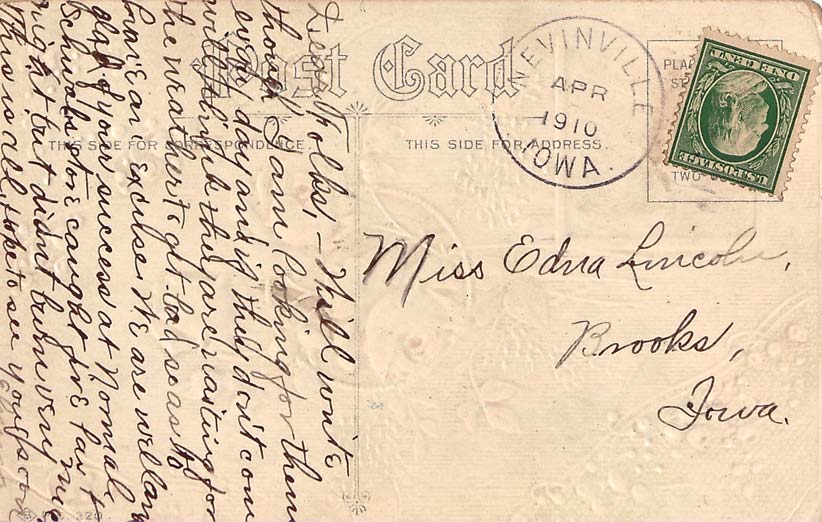 Post Card
THIS SIDE FOR CORRESPONDENCE.
THIS SIDE FOR ADDRESS.
NEVINVILLE
APR
1910
IOWA.
PLAC
ST
TWO
U.S. POSTAGE
ONE CENT
Miss Edna Lincoln,
Brooks,
Iowa.
Dear Folks,- Will write
though I am looking for them
every day and if they don't come
will think they are waiting for
the weather to get bad so as to
have an excuse. We are well and
glad of your success at Normal.
Schwabs store caught fire last
night but didn't burn very much
This is all, hope to see you soon
220